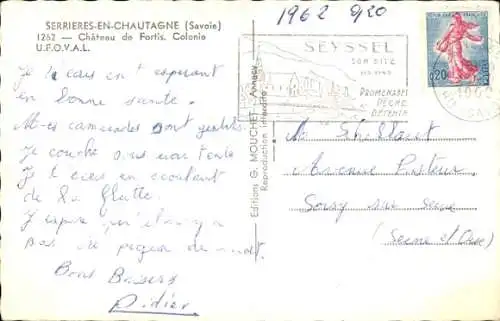 SERRIERES-EN-CHAUTAGNE (Savoie)
1262 — Château de Fortis. Colonie
U.F.O.V.A.L.
1962 0,20
Je t'ecris en t'esperant
en bonne sante.
Mes camarades sont gentils.
Je couche sous une tente
Je t'ecris en ecoutant
de la flutte.
J'espere qu'il n'y a
pas de pigeon de mort.
Bons Baisers
Didier
Editions G. MOUCHET, Annecy
Reproduction interdite
SEYSSEL
SON SITE
SES VINS
PROMENADES
PÊCHE
DÉTENTE
0,20
M
Avenue Pasteur
sur Seine
(Seine et Oise)